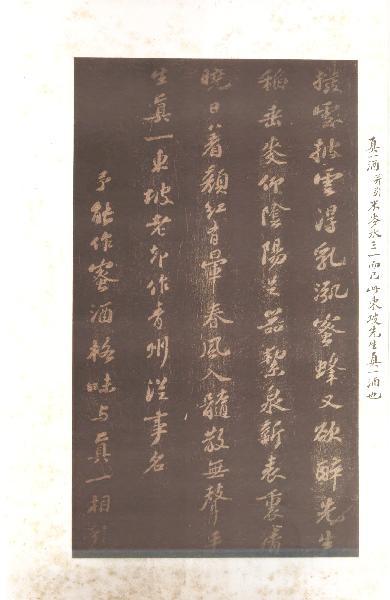 真一酒并引米麥水三一而已此東坡先生真一酒也
撥雪披雲得乳泓蜜蜂又欲醉先生
稻垂麥仰陰陽足器絜泉新表裏清
曉日著顏紅有暈春風入髓散無聲平
生真一東坡老却作青州從事名
予能作蜜酒格味与真一相亂